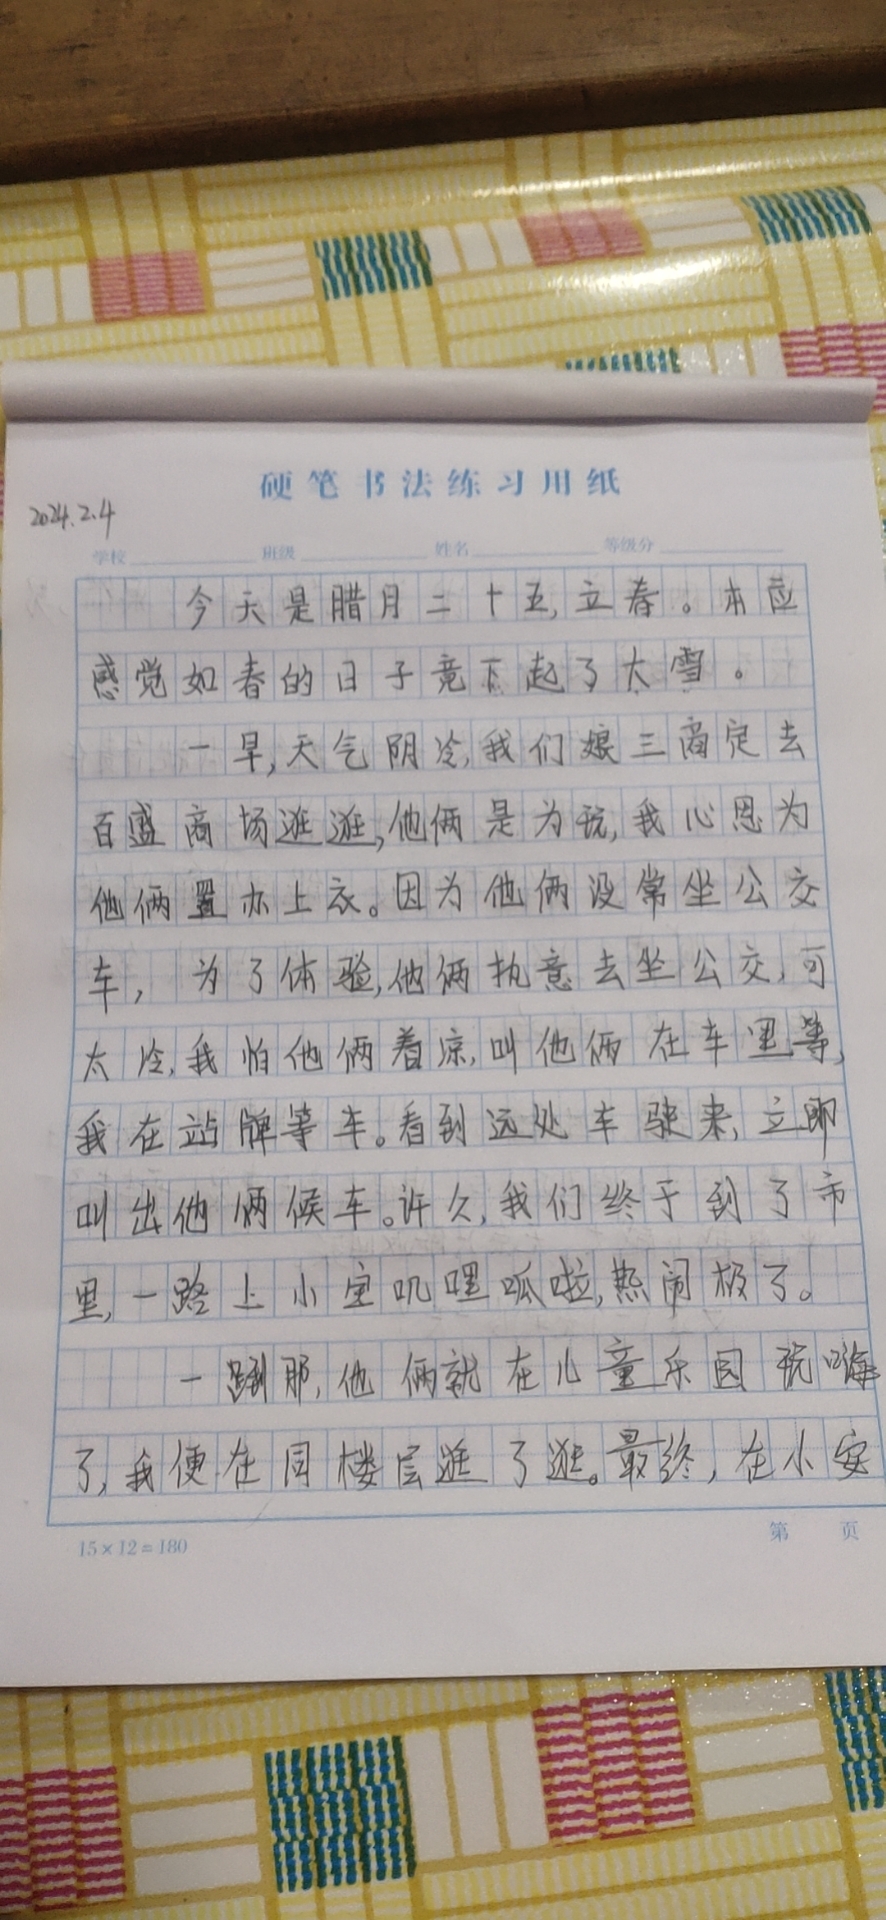 硬笔书法练习用纸
2024.2.4
学校 班级 姓名 等级分
今天是腊月二十五,立春。本应
感觉如春的日子竟下起了大雪。
一早,天气阴冷,我们娘三商定去
百盛商场逛逛,他俩是为玩,我心思为
他俩置办上衣。因为他俩没常坐公交
车,为了体验,他俩执意去坐公交,可
太冷,我怕他俩着凉,叫他俩在车里等,
我在站牌等车。看到远处车驶来,立即
叫出他俩候车。许久,我们终于到了市
里,一路上小宝叽哩呱啦,热闹极了。
一到那,他俩就在儿童乐园玩嗨
了,我便在同楼层逛了逛。最终,在小安
15×12=180
第 页